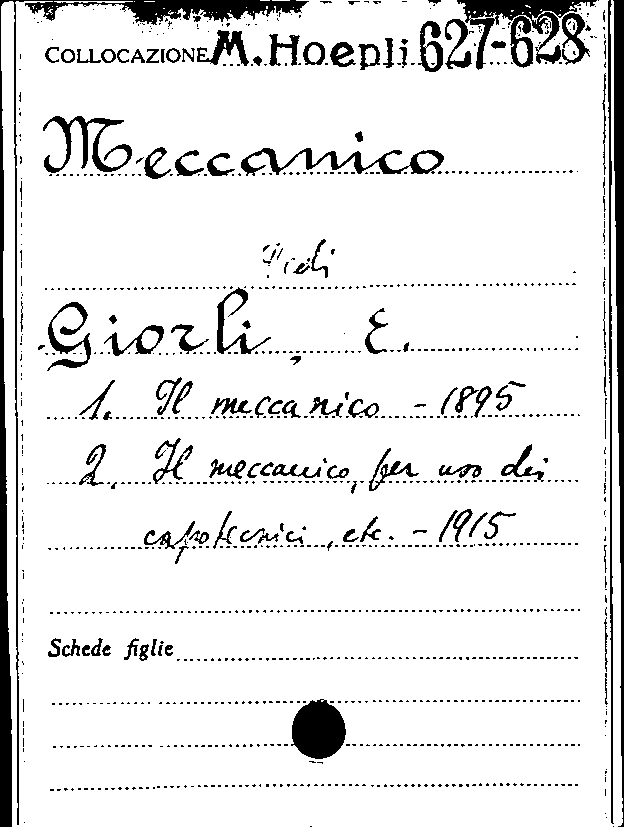 COLLOCAZIONE M. Hoepli 627-628
Meccanico
Vedi
Giorli, E.
1. Il meccanico - 1895
2. Il meccanico, per uso dei
capotecnici, etc. - 1915
Schede figlie